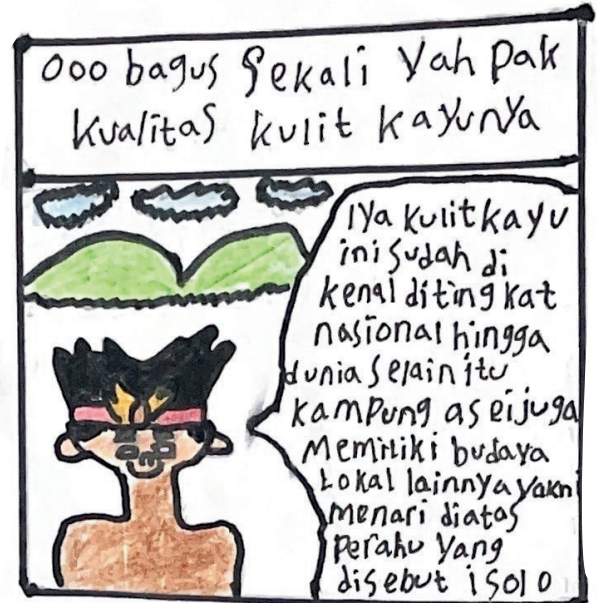 ooo bagus sekali yah pak
kualitas kulit kayunya
Iya kulit kayu
ini sudah di
kenal diting kat
nasional hingga
dunia selain itu
kampung asei juga
memiliki budaya
Lokal lainnya yakni
menari diatas
perahu yang
disebut isolo